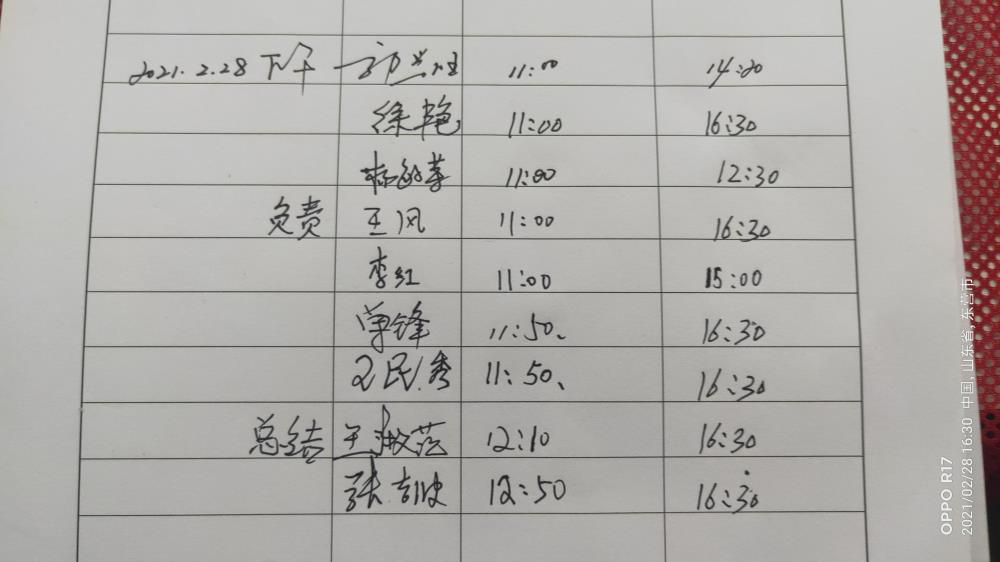 2021.2.28 下午 11:00 14:20
徐艳 11:00 16:30
11:00 12:30
负责 王风 11:00 16:30
李红 11:00 15:00
锋 11:50、 16:30
民秀 11:50、 16:30
总结 王 12:10 16:30
张 12:50 16:30
OPPO R17
2021/02/28 16:30 中国, 山东省, 东营市